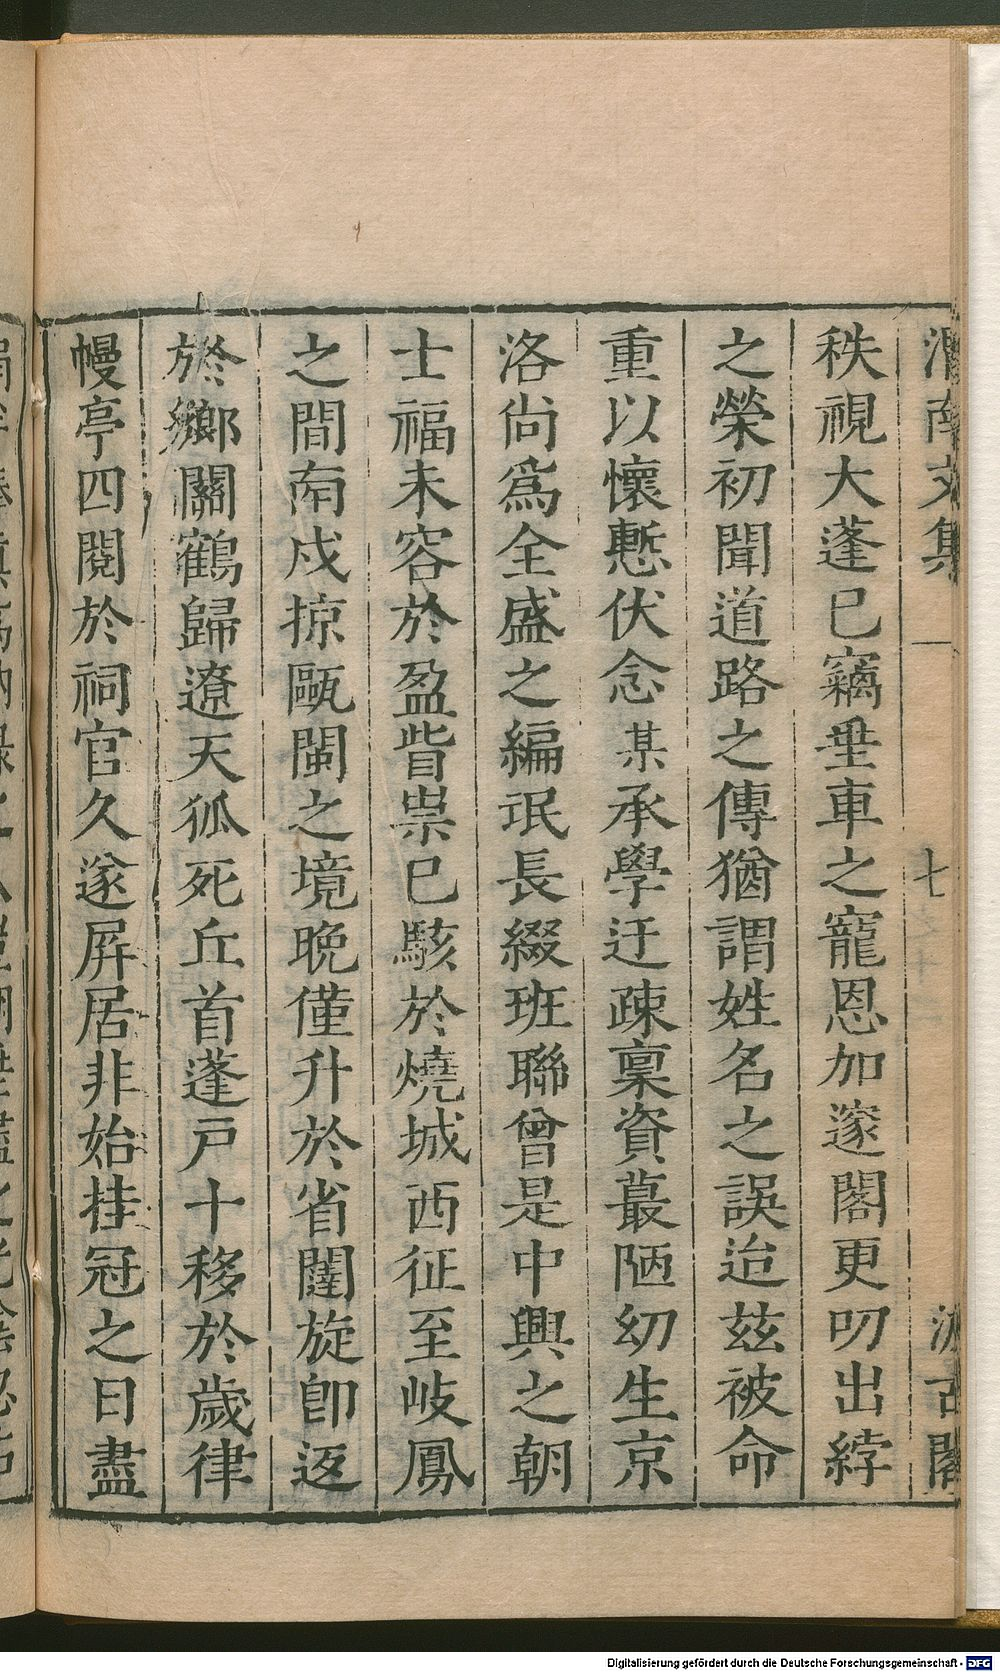 渭南文集 一 七 汲古閣
秩視大蓬已竊垂車之寵恩加邃閣更叨出綍
之榮初聞道路之傳猶謂姓名之誤迨兹被命
重以懷慙伏念某承學迂疎稟資蕞陋幼生京
洛尚爲全盛之編氓長綴班聯曾是中興之朝
士福未容於盈眥祟已駭於燒城西征至岐鳳
之間南戍掠甌閩之境晚僅升於省闥旋卽返
於鄉關鶴歸遼天狐死丘首蓬戸十移於歲律
幔亭四閱於祠官久遂屏居非始挂冠之日盡
Digitalisierung gefördert durch die Deutsche Forschungsgemeinschaft - DFG